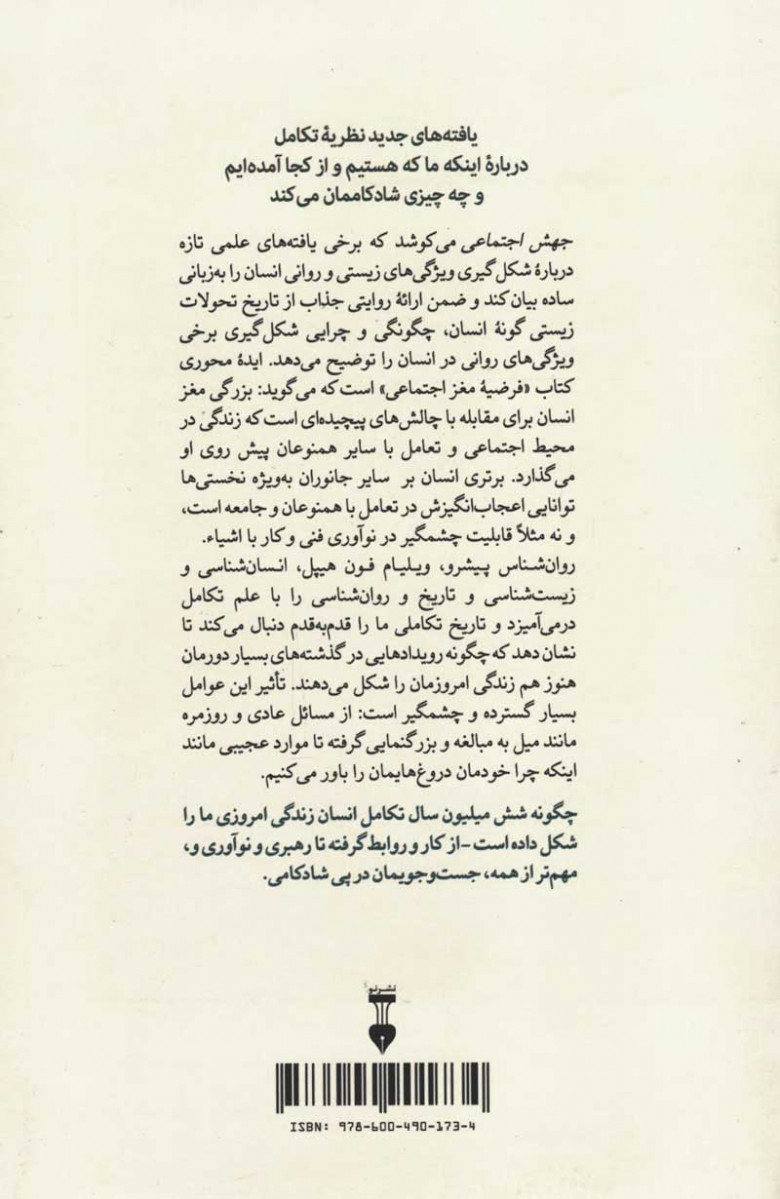 یافته‌های جدید نظریهٔ تکامل
دربارهٔ اینکه ما که هستیم و از کجا آمده‌ایم
و چه چیزی شادکاممان می‌کند
جهش اجتماعی می‌کوشد که برخی یافته‌های علمی تازه
دربارهٔ شکل‌گیری ویژگی‌های زیستی و روانی انسان را به‌زبانی
ساده بیان کند و ضمن ارائهٔ روایتی جذاب از تاریخ تحولات
زیستی گونهٔ انسان، چگونگی و چرایی شکل‌گیری برخی
ویژگی‌های روانی در انسان را توضیح می‌دهد. ایدهٔ محوری
کتاب «فرضیهٔ مغز اجتماعی» است که می‌گوید: بزرگی مغز
انسان برای مقابله با چالش‌های پیچیده‌ای است که زندگی در
محیط اجتماعی و تعامل با سایر همنوعان پیش روی او
می‌گذارد. برتری انسان بر سایر جانوران به‌ویژه نخستی‌ها
توانایی اعجاب‌انگیزش در تعامل با همنوعان و جامعه است،
و نه مثلاً قابلیت چشمگیر در نوآوری فنی و کار با اشیاء.
روان‌شناس پیشرو، ویلیام فون هیپل، انسان‌شناسی و
زیست‌شناسی و تاریخ و روان‌شناسی را با علم تکامل
درمی‌آمیزد و تاریخ تکاملی ما را قدم‌به‌قدم دنبال می‌کند تا
نشان دهد که چگونه رویدادهایی در گذشته‌های بسیار دورمان
هنوز هم زندگی امروزمان را شکل می‌دهند. تأثیر این عوامل
بسیار گسترده و چشمگیر است: از مسائل عادی و روزمره
مانند میل به مبالغه و بزرگنمایی گرفته تا موارد عجیبی مانند
اینکه چرا خودمان دروغ‌هایمان را باور می‌کنیم.
چگونه شش میلیون سال تکامل انسان زندگی امروزی ما را
شکل داده است -از کار و روابط گرفته تا رهبری و نوآوری و،
مهم‌تر از همه، جست‌وجویمان در پی شادکامی.
نشرنو
ISBN: 978-600-490-173-4